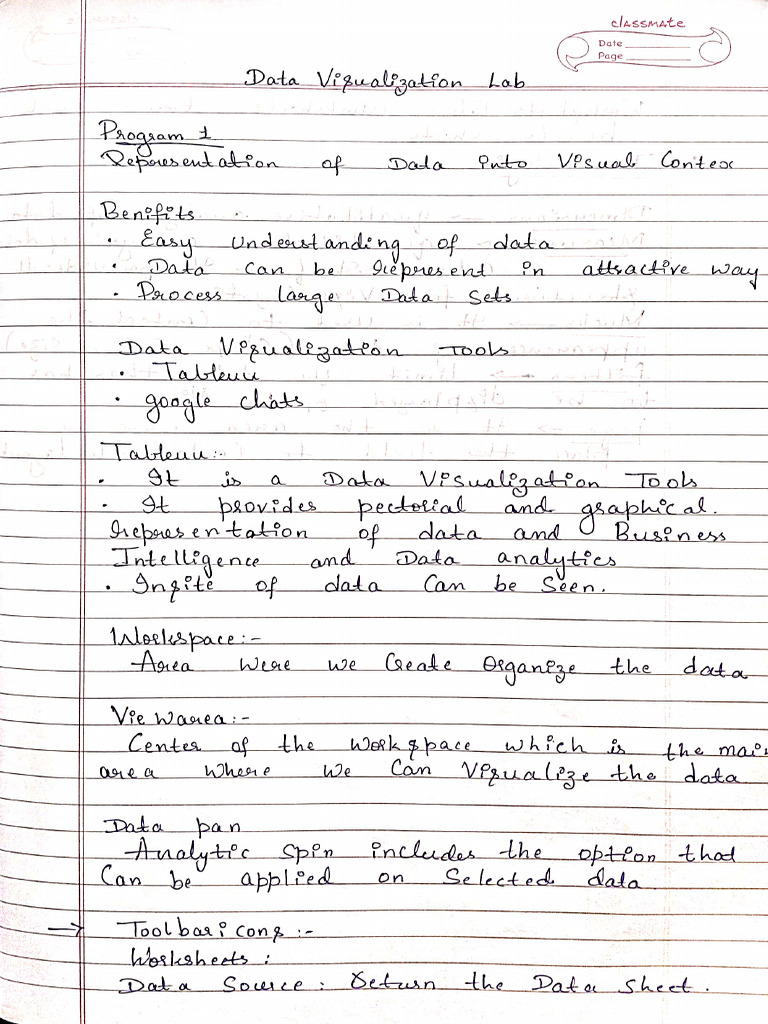 classmate
Date
Page
Data Visualization Lab
Program 1
Representation of Data into Visual Contex
Benifits
• Easy Understanding of data
• Data can be represent in attractive way
• Process large Data Sets
Data Visualization Tools
• Tableuu
• google chats
Tableuu:-
• It is a Data Visualization Tools
• It provides pectorial and graphical.
representation of data and Business
Intelligence and Data analytics
• Insite of data Can be Seen.
Workspace:-
Area were we Create Organize the data
View area:-
Center of the workspace which is the main
area where we Can Visualize the data
Data pan
Analytic spin includes the option that
Can be applied on Selected data
→ Toolbar icons :-
Worksheets :
Data Source : Return the Data Sheet.